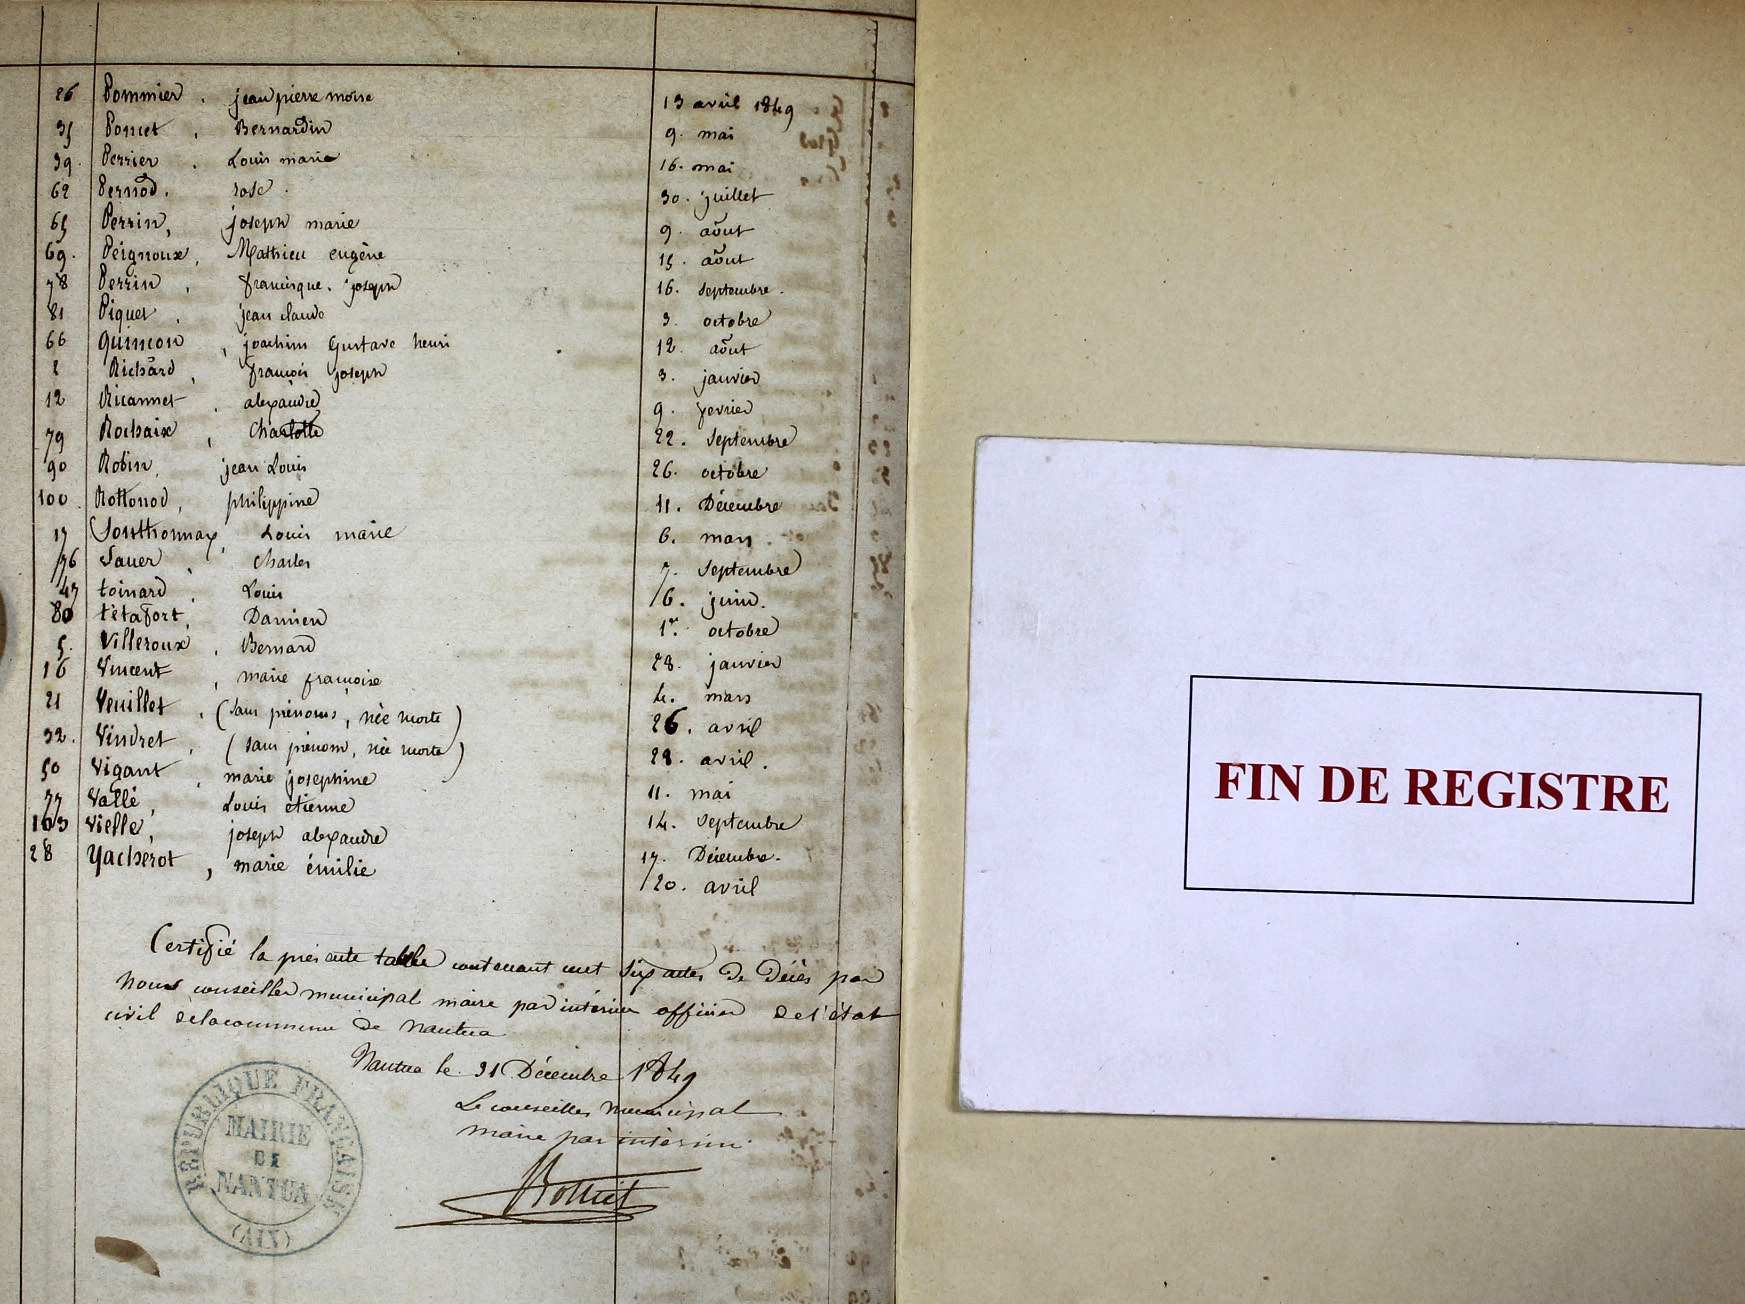 26 Pommier. jean pierre moise 13 avril 1849
35 Poncet, Bernardin 9. mai
39. Perrier. Louis marie 16. mai
62 Pernod. rose. 30. juillet
65 Perrin, joseph marie 9. août
69. Peignoux, Mathieu eugène 15. août
78 Perrin, francisque. joseph 16. septembre.
81 Piquet. jean claude 3. octobre
66 Quinson, joachim Gustave henri 12. août
2 Richard, françois joseph 3. janvier
12 alexandre 9. fevrier
79 Rochaix, Charlotte 22. Septembre
90 Robin, jean Louis 26. octobre
100. philippine 11. Décembre
17 Sonthonnax, Louis marie 6. mars.
76 Sauer, Charles 7. Septembre
47 toinard, Louis 6. juin.
80 tétafort, Damien 1er. octobre
5. Villeroux, Bernard 28. janvier
16 Vincent, marie françoise 4. mars
21 Veuillet, (sans prénoms, née morte) 26. avril
32. Vindret, (sans prénom, née morte) 28. avril.
50 Vigant, marie josephine 11. mai
77 Vallé, Louis etienne 14. Septembre
103 Vielle, joseph alexandre 17. Décembre.
28 Yacherot, marie émilie 20. avril
Certifié la présente table contenant cent six actes de Décès par
Nous conseiller municipal maire par intérim officier de l'état
civil de la commune de Nantua
Nantua le 31 Décembre 1849
Le conseiller municipal
maire par intérim
RÉPUBLIQUE FRANÇAISE
MAIRIE
DE
NANTUA
(AIN)
FIN DE REGISTRE